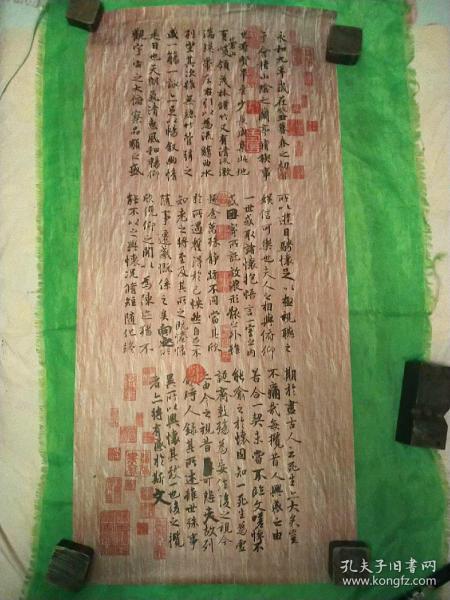 永和九年歲在癸丑暮春之初
會于會稽山陰之蘭亭脩禊事
也羣賢畢至少長咸集此地
有崇山峻領茂林脩竹又有清流激
湍暎帶左右引以為流觴曲水
列坐其次雖無絲竹管弦之
盛一觴一詠亦足以暢敘幽情
是日也天朗氣清惠風和暢仰
觀宇宙之大俯察品類之盛
所以遊目騁懷足以極視聽之
娛信可樂也夫人之相與俯仰
一世或取諸懷抱悟言一室之內
或因寄所託放浪形骸之外雖
趣舍萬殊靜躁不同當其欣
於所遇蹔得於己快然自足不
知老之將至及其所之既惓情
隨事遷感慨係之矣向之所
欣俛仰之閒以為陳迹猶不
能不以之興懷況脩短隨化終
期於盡古人云死生亦大矣豈
不痛哉每攬昔人興感之由
若合一契未嘗不臨文嗟悼不
能喻之於懷固知一死生為虛
誕齊彭殤為妄作後之視今
亦由今之視昔悲夫故列
敘時人錄其所述雖世殊事
異所以興懷其致一也後之攬
者亦將有感於斯文
孔夫子旧书网
www.kongfz.com